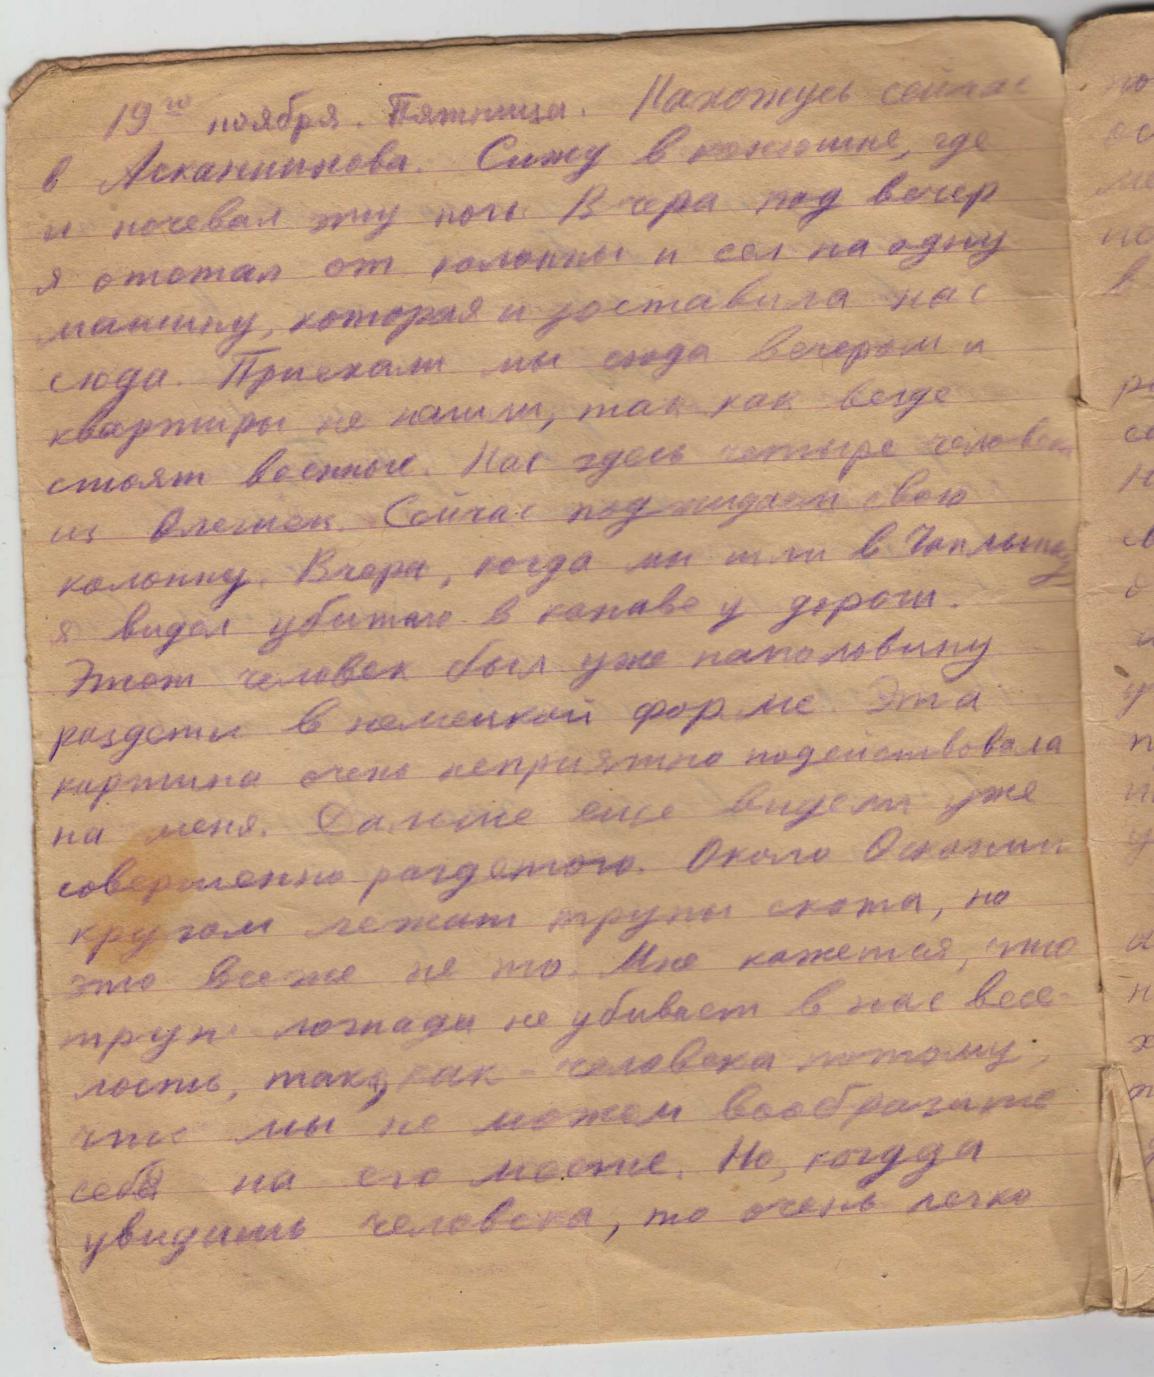 19го ноября. Пятница. Нахожусь сейчас
в Асканиинова. Сижу в конюшне, где
и ночевал эту ночь. Вчера под вечер
я отстал от колонны и сел на одну
машину, которая и доставила нас
сюда. Приехали мы сюда вечером и
квартиры не нашли, так как везде
стоят военные. Нас здесь четыре человека
из Олешек. Сейчас поджидаем свою
колонну. Вчера, когда мы шли в Чаплынку
я видел убитого в канаве у дороги.
Этот человек был уже наполовину
раздеты в немецкой форме. Эта
картина очень неприятно подействовала
на меня. Дальше еще видели уже
совершенно раздетого. Около Аскании
кругом лежат трупы скота, но
это все же не то. Мне кажется, что
труп лошади не убивает в нас весе-
лость, так, как - человека потому,
что мы не можем вообразить
себя на его месте. Но, когдда
увидишь человека, то очень легко